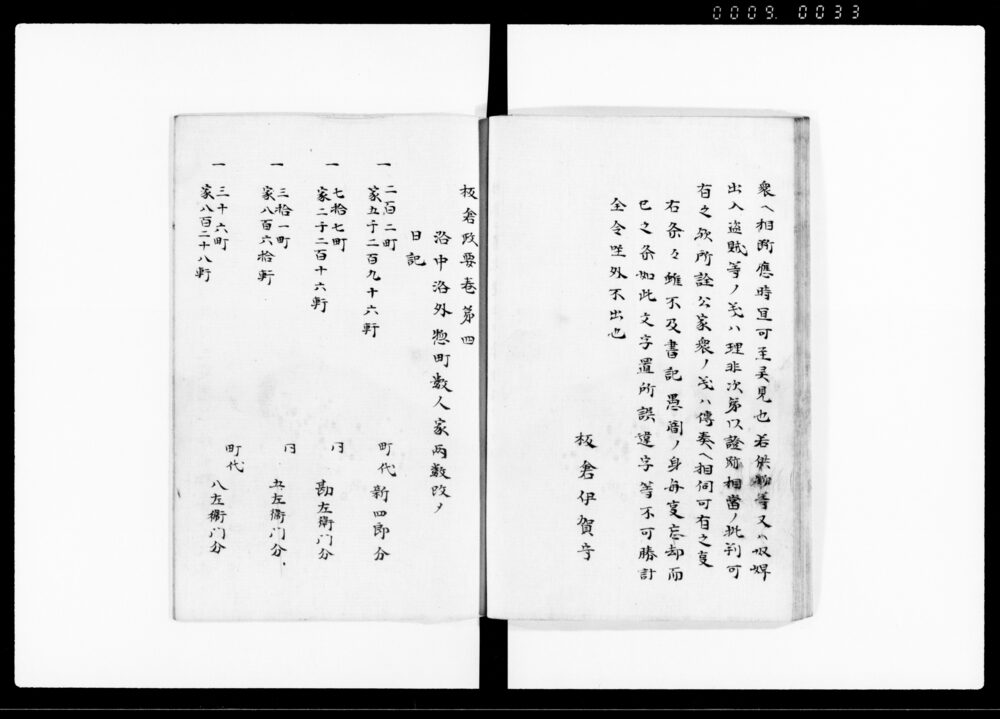 0009. 0033
衆ヘ相断應時宜可至異見也若供物等又ハ奴婢
出入盗賊等ノ義ハ理非次第以證跡相當ノ批判可
有之欤所詮公家衆ノ義ハ傳奏ヘ相伺可有之事
右条々雖不及書記愚閣ノ身毎事忘却而
已之条如此文字置所誤違字等不可勝計
全令世外不出也
板倉伊賀守
板倉政要巻第四
洛中洛外惣町數人家両數改ノ
日記
一 二百二町
家五千二百九十六軒 町代 新四郎分
一 七拾七町
家二千二百十六軒 同 勘左衛门分
一 三拾一町
家八百六拾軒 同 五左衛门分
一 三十六町
家八百二十八軒 町代 八左衛门分